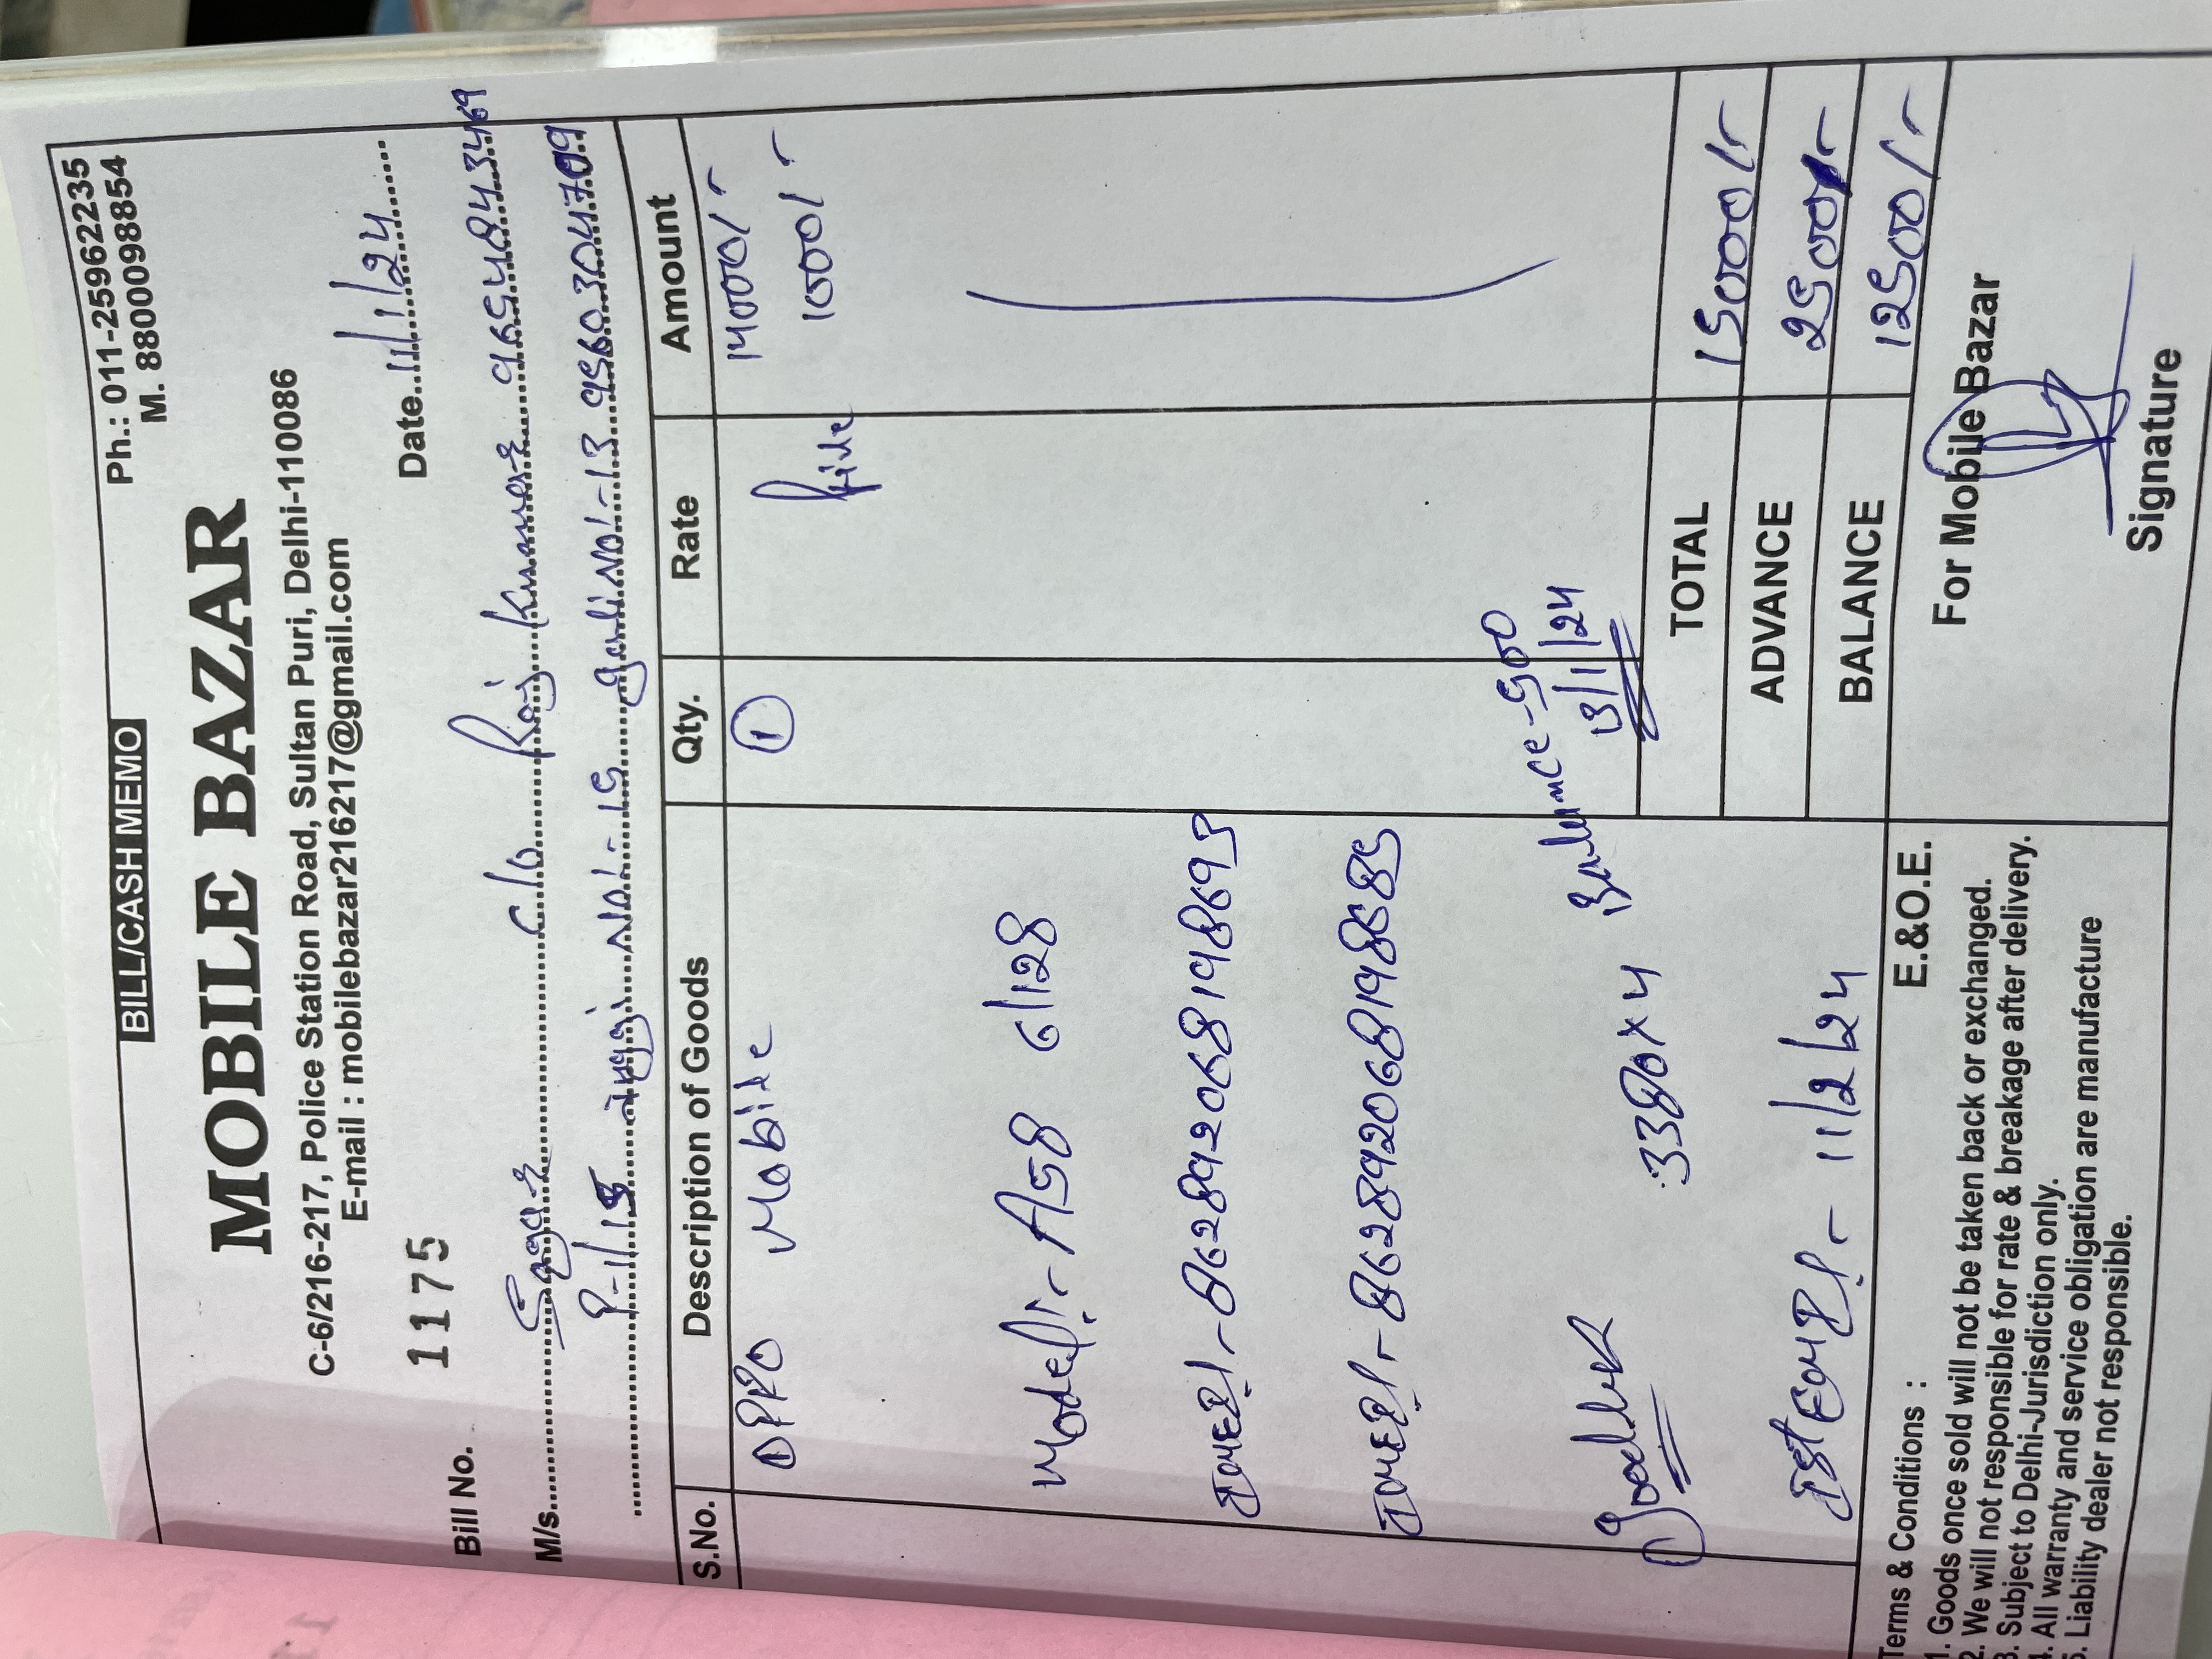 BILL/CASH MEMO
Ph.: 011-25962235
M. 8800098854
MOBILE BAZAR
C-6/216-217, Police Station Road, Sultan Puri, Delhi-110086
E-mail : mobilebazar216217@gmail.com
Bill No. 1175 Date 11/1/24
M/s. Sagar C/O Raj Kumar 9654843469
P-1/15 Jhuggi No!- 15 gali No!-13 9560304709
S.No. Description of Goods Qty. Rate Amount
OPPO Mobile 1 14000/-
file 1000/-
Model!- A58 6/128
IMEI!-862892068198693
IMEI!-862892068198685
Balance-500
13/1/24
3380x4
Ist EMI!- 11/2/24
TOTAL 15000/-
ADVANCE 2500/-
BALANCE 12500/-
E.&O.E.
For Mobile Bazar
Terms & Conditions :
1. Goods once sold will not be taken back or exchanged.
2. We will not responsible for rate & breakage after delivery.
3. Subject to Delhi-Jurisdiction only.
4. All warranty and service obligation are manufacture
5. Liability dealer not responsible.
Signature